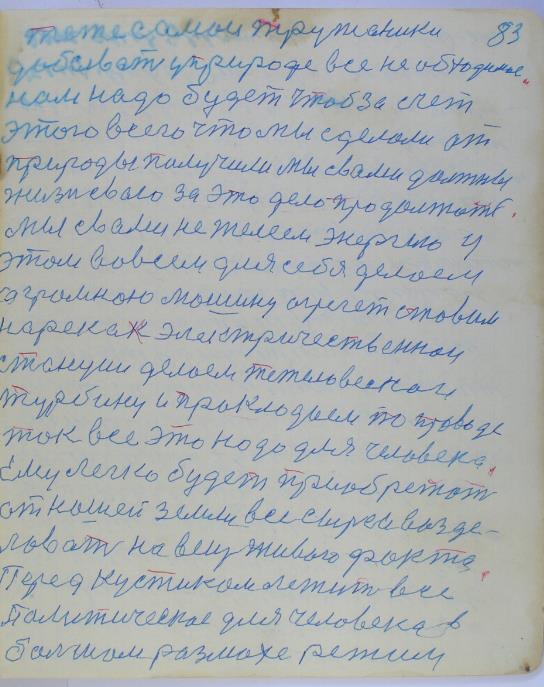 83
теже самои тружаники
добыват уприроде все необходимое.
нам надо будет чтоб за счет
этого всего что мы сделали от
природы получили мы свами должны
жизн сваю за это дело продолжат.
мы свами не жалеем энергию и
этом вовсем для себя делоем
агромною мошину агрегат стовим
нареках электричественнои
станции делоем тежеловесною
турбину и прокладыем по проводе
ток все это надо для человека,
Ему легко будет приобретат
от нашей земли все сыръе вазде-
ловат на вещ живого факта,
Перед кустиком лежит все
политическое для человека в
болшом размохе режим